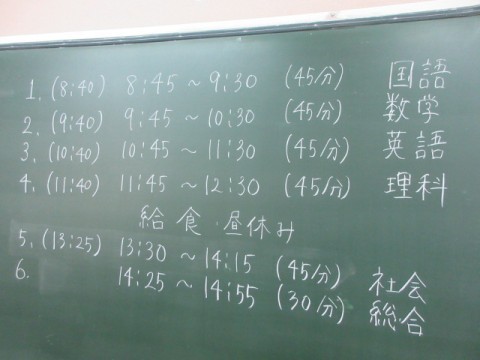 1. (8:40) 8:45 ~ 9:30 (45分) 国語
2. (9:40) 9:45 ~ 10:30 (45分) 数学
3. (10:40) 10:45 ~ 11:30 (45分) 英語
4. (11:40) 11:45 ~ 12:30 (45分) 理科
給食・昼休み
5. (13:25) 13:30 ~ 14:15 (45分) 社会
6. 14:25 ~ 14:55 (30分) 総合